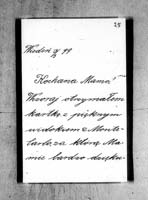 25
Wiedeń 99
Kochana Mamo!
Wczoraj otrzymałem
kartkę z pięknym
widokiem z Monte-
carlo, za którą Ma-
mie bardzo dzięku-